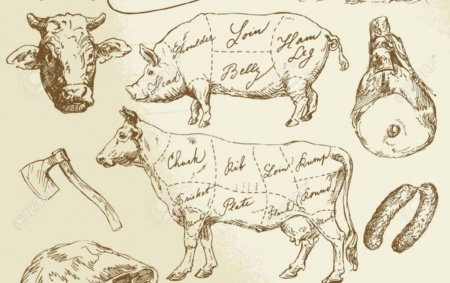 Shoulder Loin Ham
Leg
Head Belly
Chuck Rib Loin Rump
Brisket Plate Flank Round